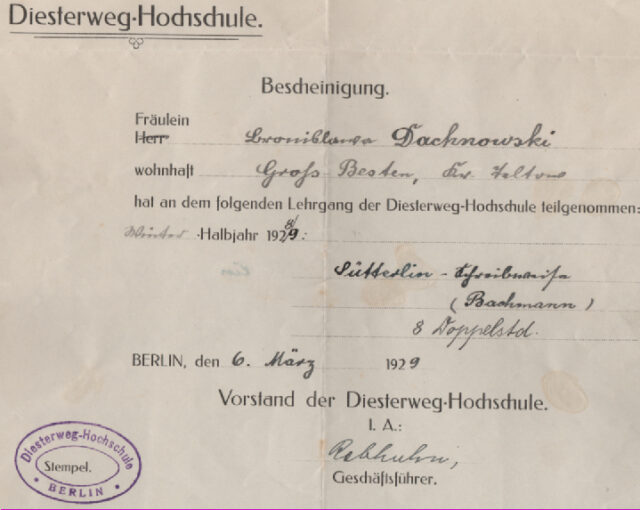 Diesterweg-Hochschule.
Bescheinigung.
Fräulein
Herr Bronislawa Dachnowski
wohnhaft Groß Besten, Kr. Teltow
hat an dem folgenden Lehrgang der Diesterweg-Hochschule teilgenommen:
Winter-Halbjahr 1928/9:
Sütterlin-Schreibweise
(Bachmann)
8 Doppelstd.
BERLIN, den 6. März 1929
Vorstand der Diesterweg-Hochschule.
I. A.:
Rebhuhn,
Geschäftsführer.
Diesterweg-Hochschule
Stempel.
• BERLIN •